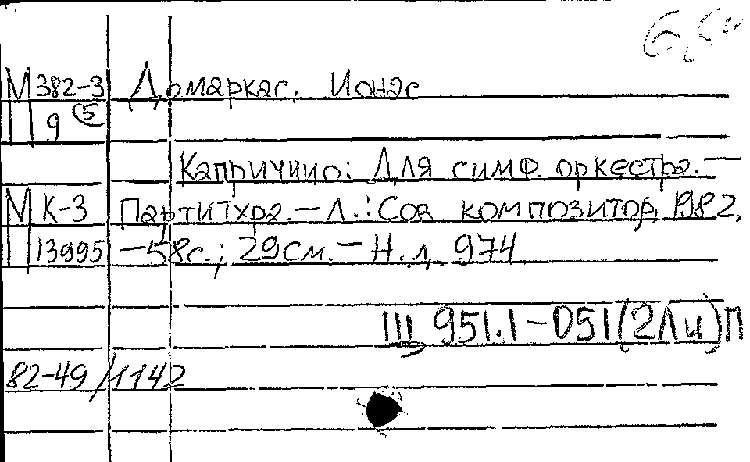 М 382-3 Домаркас, Ионас
П 9 (5)
Капричино: Для симф. оркестра.—
М К-3 Партитура.—Л.: Сов композитор, 1982,
П 13995 —58с.; 29см.—Н.д. 974
Щ 951.1-051(2Ли)П
82-49/1142